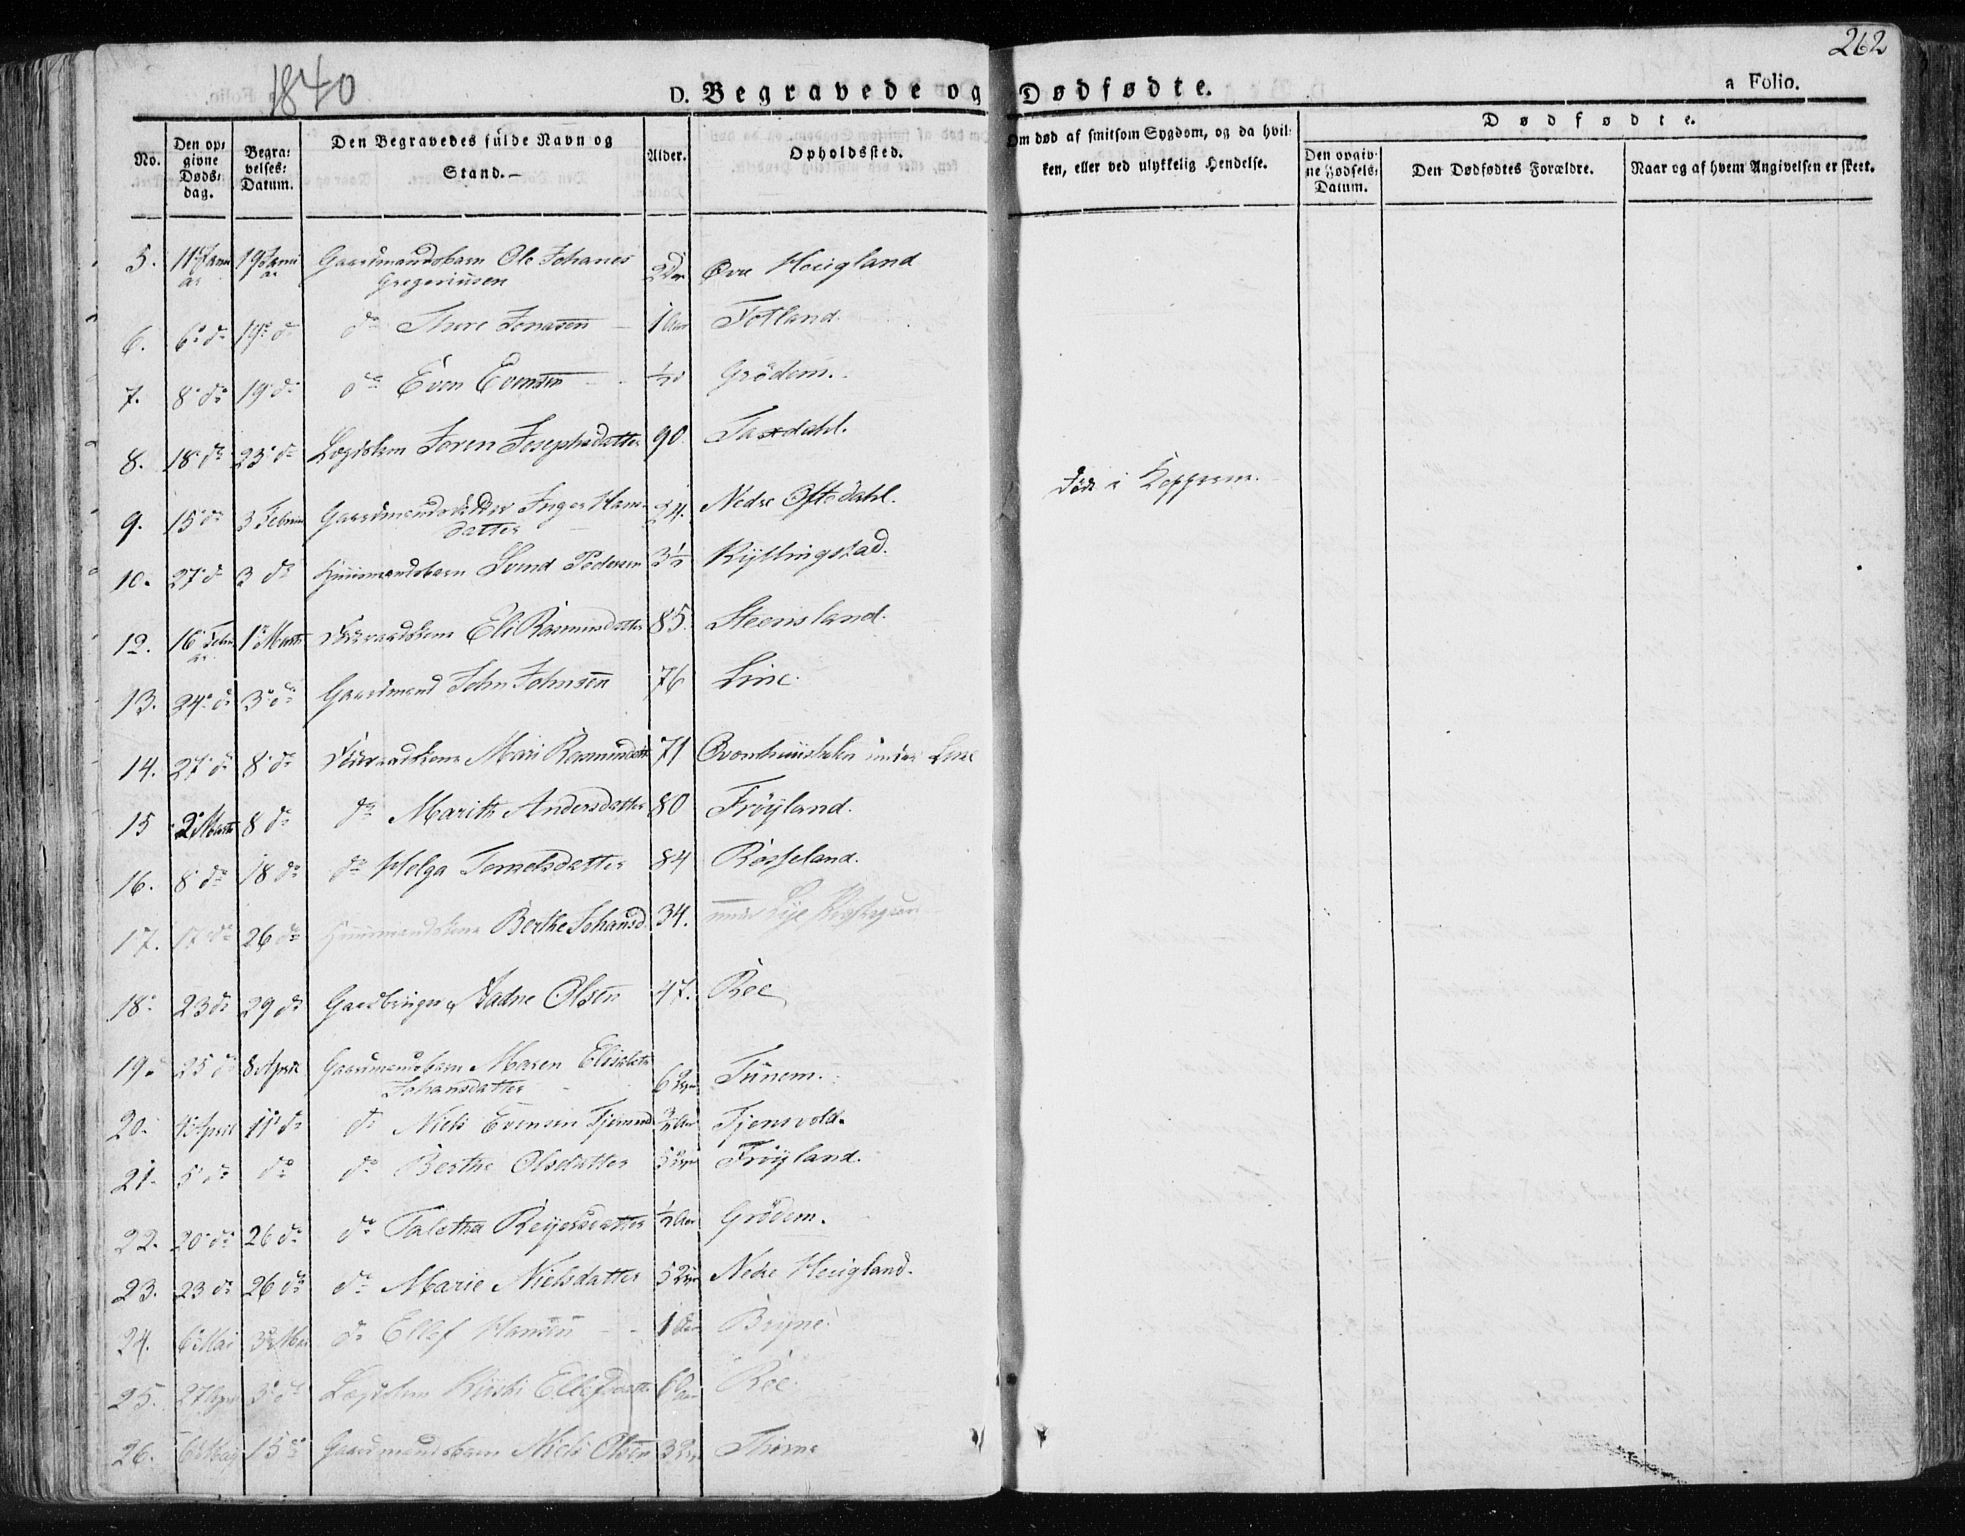 1840
262
D. Begravede og Dødfødte.
a Folio.
No.
Den opgivne Døds-dag.
Begravelses-Datum.
Den Begravedes fulde Navn og Stand.
Alder.
Opholdssted.
Om død af smitsom Sygdom, og da hvilken, eller ved ulykkelig Hendelse.
Dødfødte.
Den opgivne Fødsels-Datum.
Den Dødfødtes Forældre.
Naar og af hvem Angivelsen er skeet.
5. 11 Januar 19 Januar Gaardmandsbarn Ole Johanes Gregeriusen Øvre Hougland
6. 6 do 19 do do Ture Jonasen 1 Aar Fotland.
7. 8 do 19 do do Even Evensen ½ Grödem.
8. 18 do 23 do Lægdslem Soren Josephsdatter 90 Taxdahl.
9. 15 do 3 Februar Inger Hansdatter 24. Nedre Oftedahl. Död i Kopperne.
10. 27 do 3 do Huusmandsbarn Svend Pedersen 3½ Kyllingstad.
12. 16 Februar 1 Marts Föderaadskone Eli Rasmusdatter 85. Steensland.
13. 24 do 3 do Gaardmand John Johnsen 76 Line.
14. 27 do 8 do Föderaadskone Mari Rasmusdatter 71 under Line
15 2 Marts 8 do do Marith Andersdatter 80 Fröyland.
16. 8 do 18 do do Helga Tornelsdatter 84 Rosseland.
17. 17 do 26 do Huusmandskone Berthe Johansd. 34. under Lye
18. 23 do 29 do Gaardbruger Aadne Olsen 47. Roe
19. 25 do 8 April Gaardmandsbarn Maren Elisabeth Johansdatter 6 Tunem.
20. 4 April 11 do do Niels Evensen Aar Tjensvold.
21. 5 do do do Berthe Olsdatter 5 Fröyland.
22. 20 do 26 do do Taletha Reyersdatter ½ Aar Grödem.
23. 23 do 26 do do Marie Nielsdatter 5 Nedre Hougland.
24. 6 Mai 3 Mai do Ellef Hansen 1 Bryne
25. 27 April 3 do Lægdslem Ellefsdatter 6 Aar Roe
26. 6 May 15 do Gaardmandsbarn Niels Olsen 3 Thime